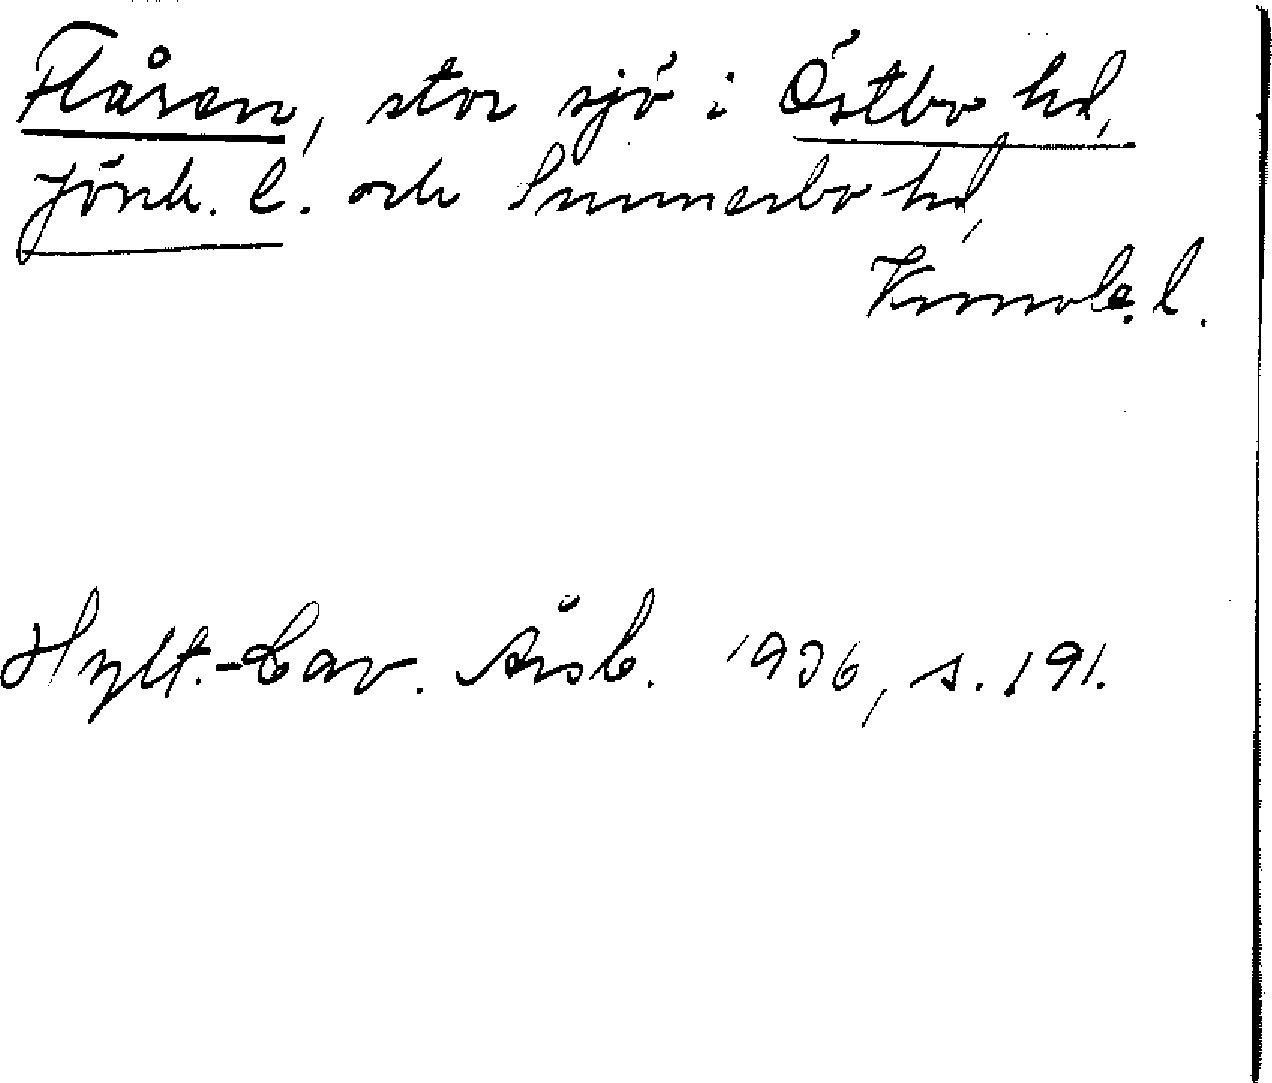 Flåren, stor sjö i Östbo hd,
Jönk. l. och Sunnerbo hd,
Kronob. l.
Hylt.-Cav. Årsb. 1936, s. 191.